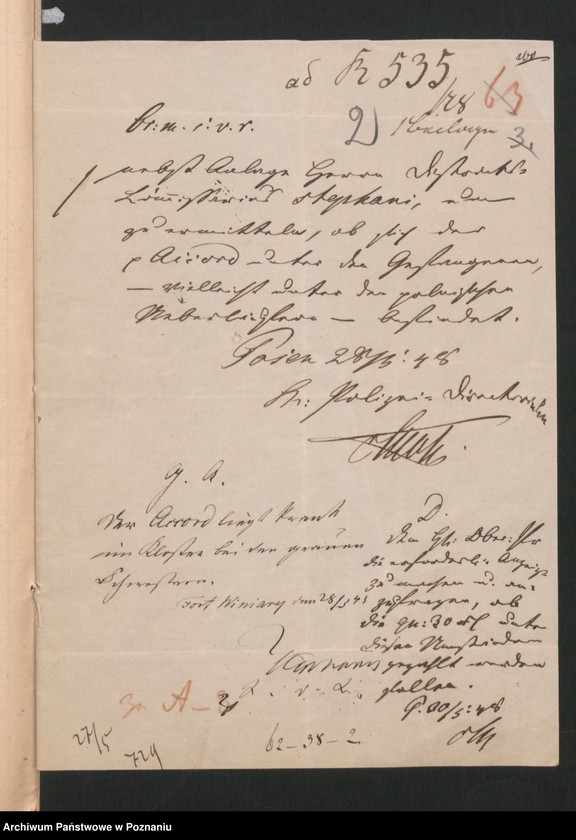 ad K 535
/48
63
br. m. s. v. r.
2)
1 Beilage
3.
nebst Anlage Herrn Distrikts-
Commissarius Stephani, um
zu ermitteln, ob sich der
p Accord unter den Gefangenen,
— vielleicht unter den polnischen
— befindet.
Posen 28/5. 48
K. Polizei-Directorium
g. A.
Der Accord liegt krank
im Kloster bei den grauen
Schwestern.
Fort Winiary den 28/5 48
D.
Dem H. Ober
die erforderl. Anzeige
zu machen u. an-
zufragen, ob
die 30 unter
diesen Umständen
gezahlt werden
sollen.
P. 30/5. 48
zu A –
27/5
729
62–38–2
Archiwum Państwowe w Poznaniu